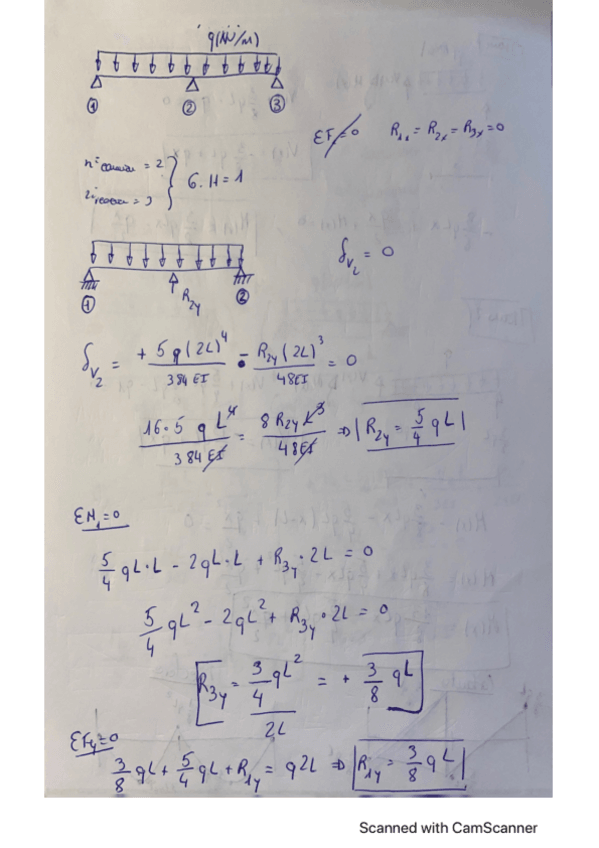 q(kN/m)
① ② ③
ΣF=0 R₁ₓ = R₂ₓ = R₃ₓ = 0
= 2
= 3
G.H = 1
δ_V₂ = 0
R₂y
① ②
δ_V₂ = + 5 q (2L)⁴ / 384 EI - R₂y (2L)³ / 48EI = 0
16·5 q L⁴ / 384 EI = 8 R₂y L³ / 48 EI ⇒ | R₂y = 5/4 qL |
ΣM₁=0
5/4 qL·L - 2qL·L + R₃y·2L = 0
5/4 qL² - 2qL² + R₃y·2L = 0
R₃y = 3/4 qL² / 2L = + 3/8 qL
ΣFy=0
3/8 qL + 5/4 qL + R₁y = q2L ⇒ | R₁y = 3/8 qL |
Scanned with CamScanner